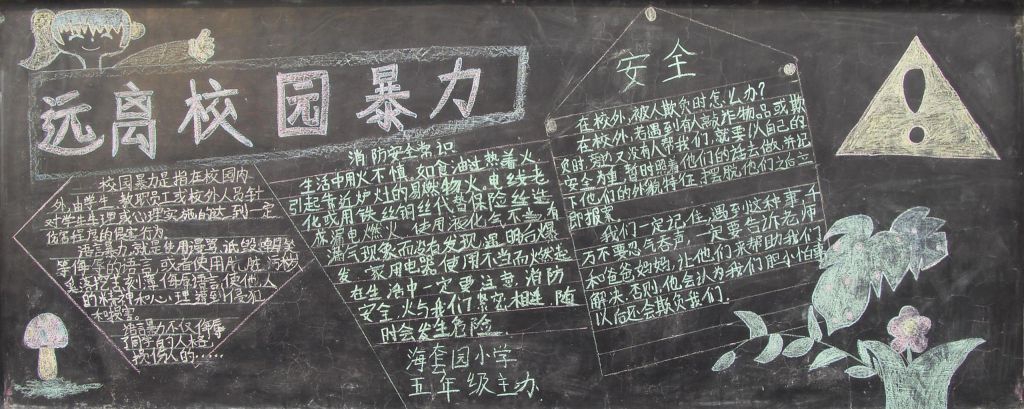 远离校园暴力
校园暴力是指在校园内
外由学生教职员工或校外人员针
对学生生理或心理实施的达到一定
伤害程度的侵害行为
语言暴力,就是使用谩骂,诋毁
等侮辱的语言,或者使用
使他人
的精神和心理遭到侵犯
和损害.
语言暴力不仅侮辱
的人格
消防安全常识
生活中用火不慎,如食油过热着火
引起靠近炉灶的易燃物火.电线老
化或用铁丝铜丝代替保险丝造
成漏电燃火.使用液化
漏气现象而没有发现,遇明火爆
发.家用电器使用不当而燃起
在生活中一定要注意消防
安全,火与我们紧密相连,随
时会发生危险
海套园小学
五年级主办
安全
在校外,被人欺负时怎么办?
在校外,若遇到有人敲诈物品或欺
负时,旁边又没有人帮我们,就要以自己的
安全为重,暂时照着他们的话去做,并记
下他们的外貌特征,摆脱他们之后立
即报案.
我们一定记住,遇到这种事,千
万不要忍气吞声,一定要告诉老师
和爸爸妈妈,让他们来帮助我们
解决.否则,他会认为我们胆小怕事,
以后还会欺负我们.